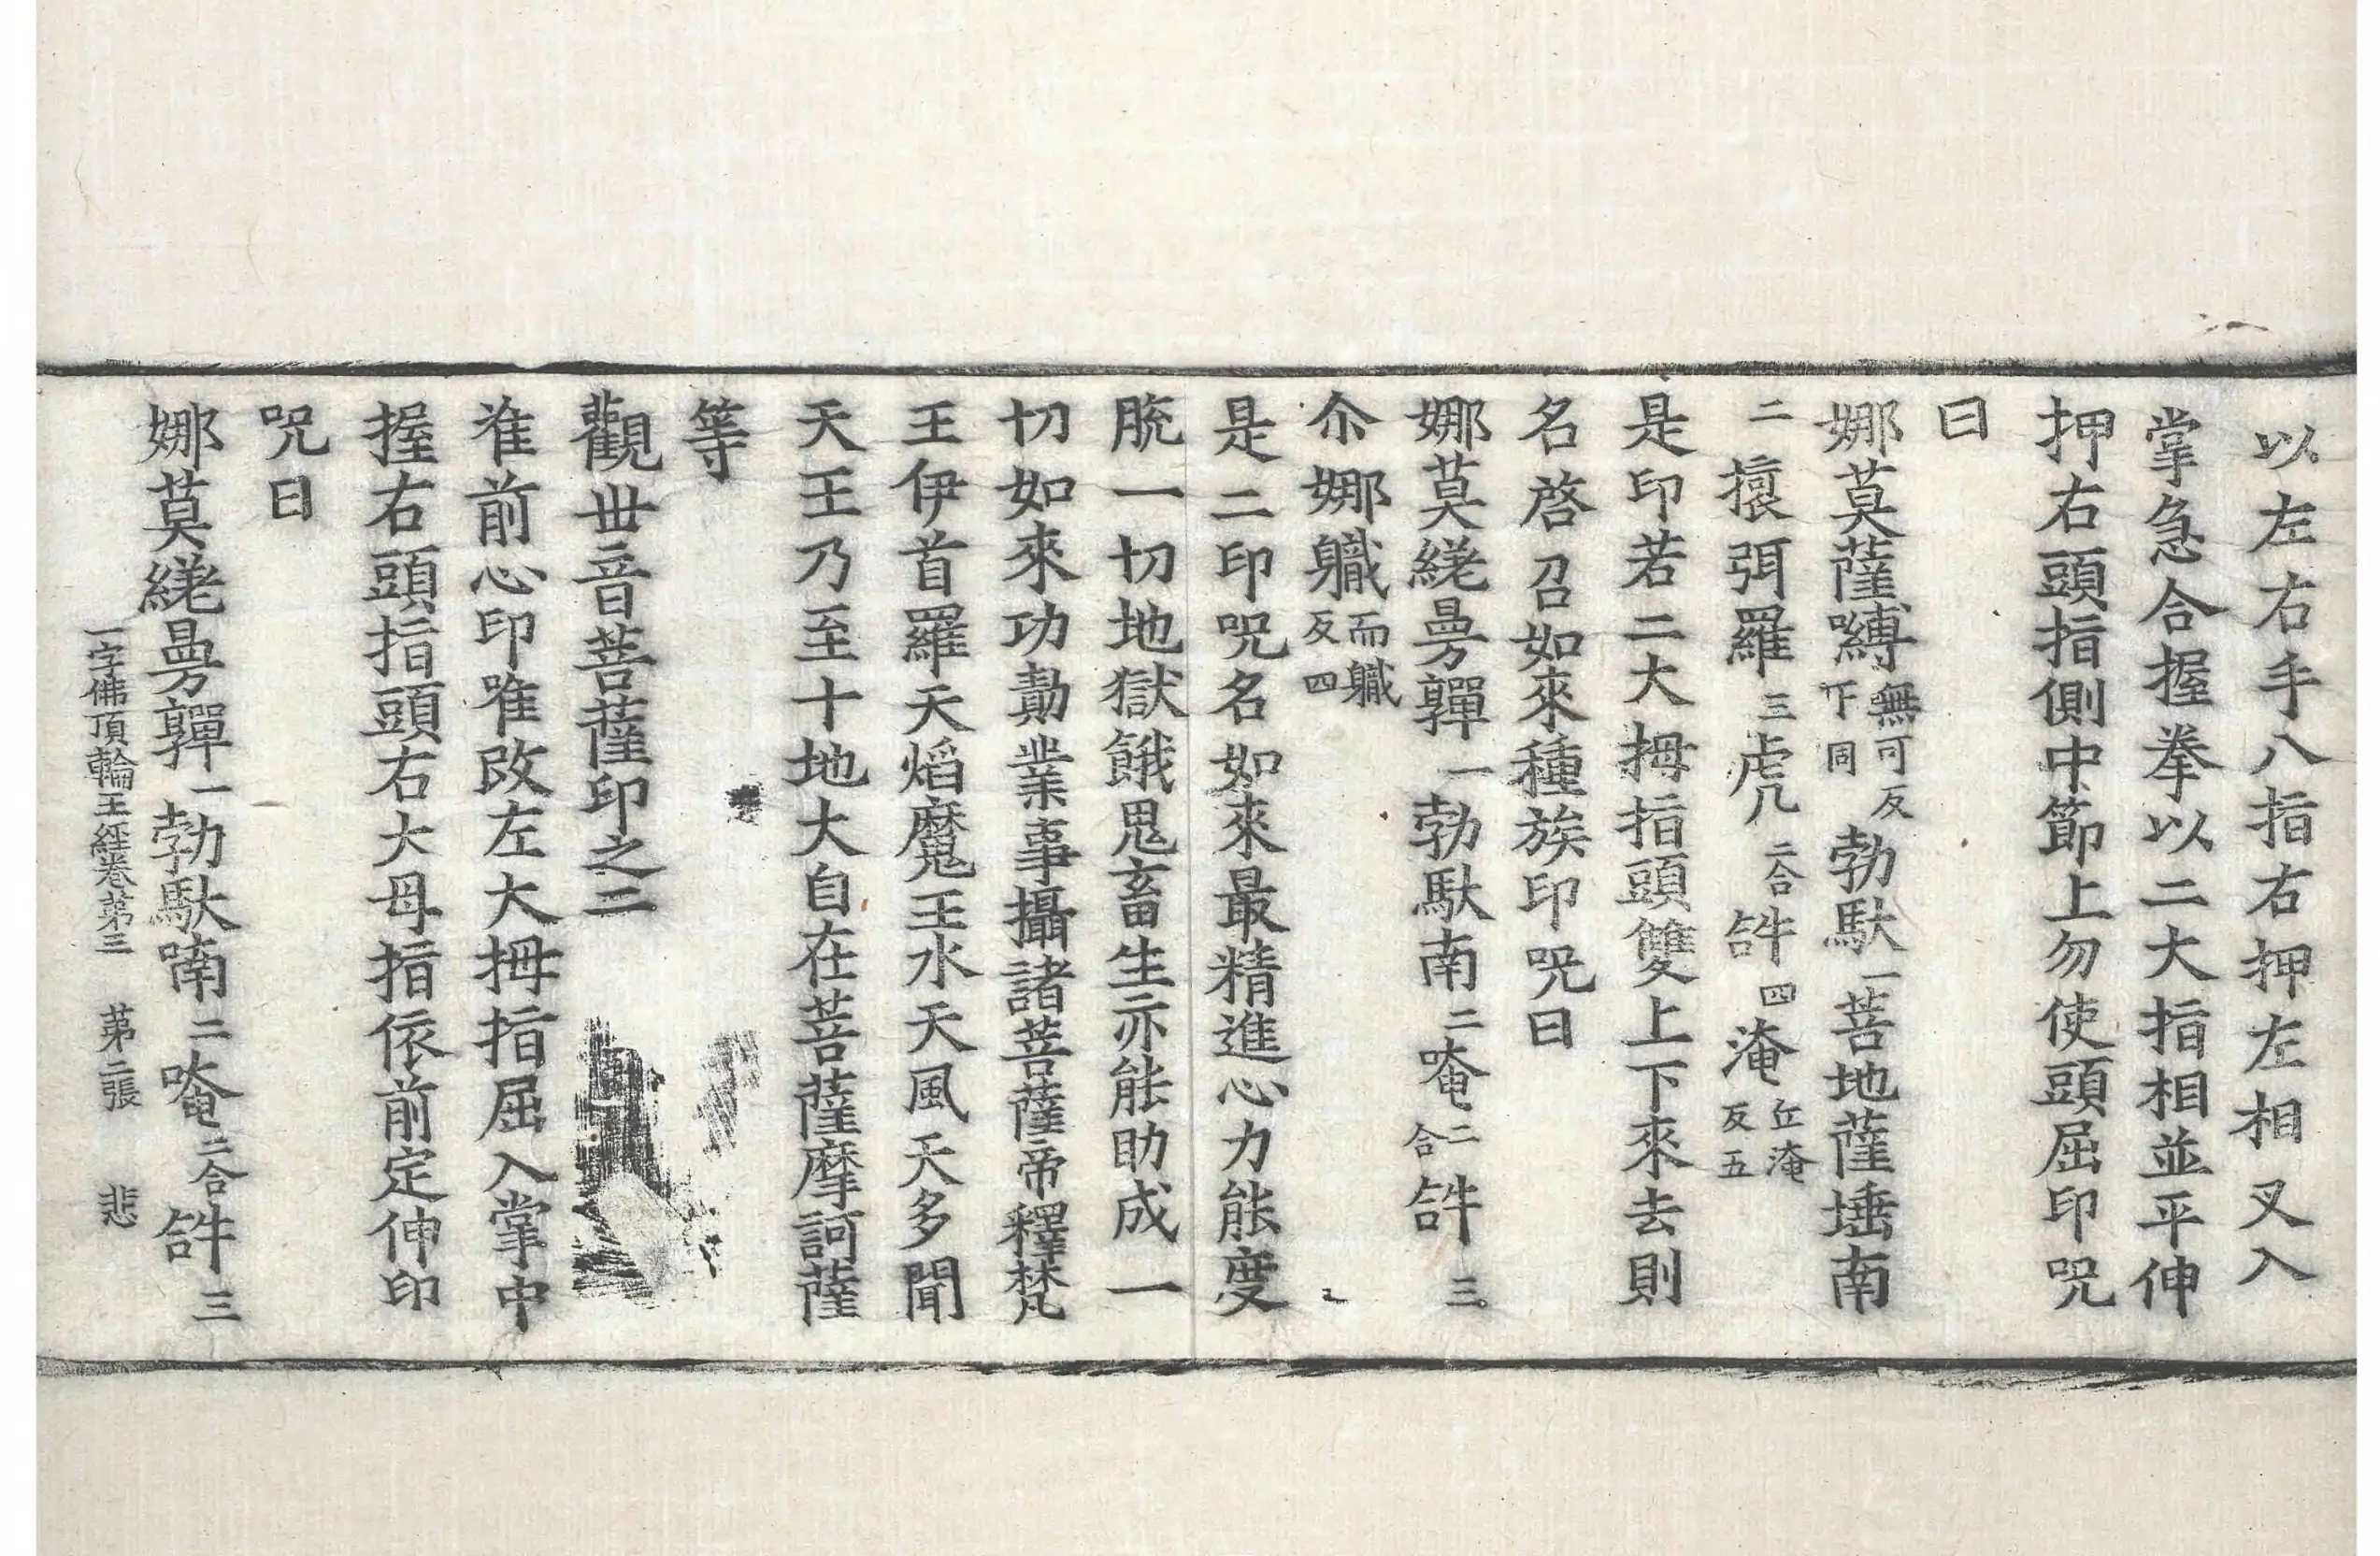 以左右手八指右押左相叉入
掌急合握拳以二大指相並平伸
押右頭指側中節上勿使頭屈印呪
曰
娜莫薩嚩無可反下同勃馱一菩地薩埵南
二擐弭羅三虎𠆩二合𤙖四淹丘淹反五
是印若二大拇指頭雙上下來去則
名啓召如來種族印呪曰
娜莫繞曼彈一勃馱南二唵二合𤙖三
尒娜軄而軄反四
是二印呪名如來最精進心力能度
脫一切地獄餓鬼畜生亦能助成一
切如來功勳業事攝諸菩薩帝釋梵
王伊首羅天焰魔王水天風天多聞
天王乃至十地大自在菩薩摩訶薩
等
觀世音菩薩印之二
准前心印唯改左大拇指屈入掌中
握右頭指頭右大母指依前定伸印
呪曰
一字佛頂輪王經卷第三 第二張 悲
娜莫繞曼彈一勃馱喃二唵二合𤙖三